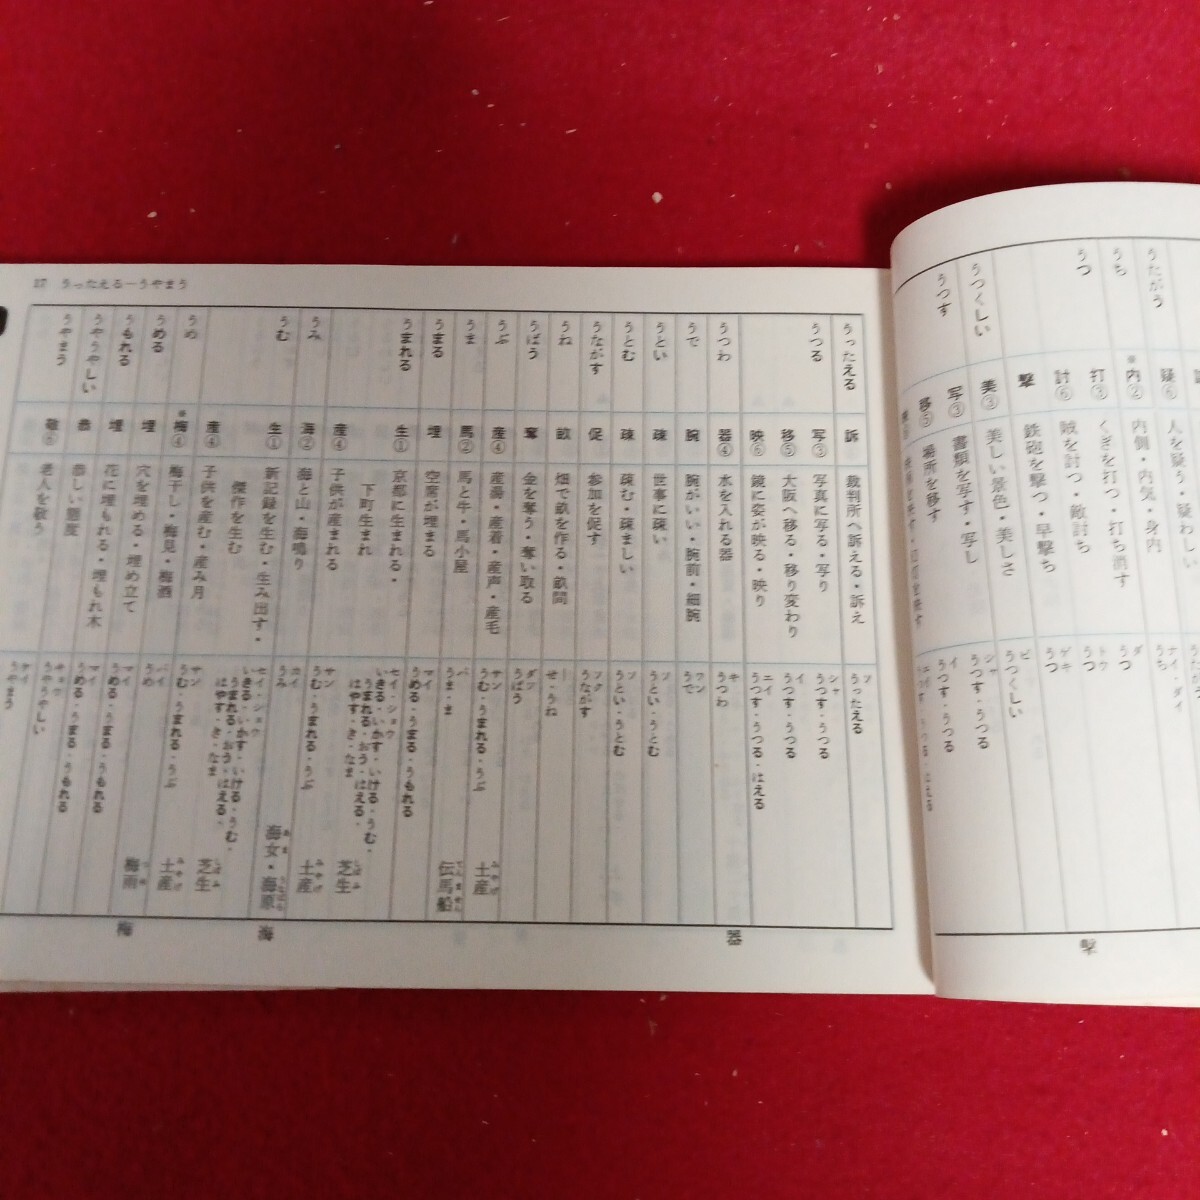 うたがう 疑⑥ 人を疑う・疑わしい
うち ※内② 内側・内気・身内 ナイ・ダイ うち
うつ 打③ くぎを打つ・打ち消す ダ うつ
討⑥ 賊を討つ・敵討ち トウ うつ
撃 鉄砲を撃つ・早撃ち ゲキ うつ 擊
うつくしい 美③ 美しい景色・美しさ ビ うつくしい
うつす 写③ 書類を写す・写し シャ うつす・うつる
移⑤ 場所を移す イ うつす・うつる
17 うったえる—うやまう
うったえる 訴 裁判所へ訴える・訴え ソ うったえる
うつる 写③ 写真に写る・写り シャ うつす・うつる
移⑤ 大阪へ移る・移り変わり イ うつす・うつる
映⑥ 鏡に姿が映る・映り エイ うつす・うつる・はえる
うつわ 器④ 水を入れる器 キ うつわ 器
うで 腕 腕がいい・腕前・細腕 ワン うで
うとい 疎 世事に疎い ソ うとい・うとむ
うとむ 疎 疎む・疎ましい ソ うとい・うとむ
うながす 促 参加を促す ソク うながす
うね 畝 畑で畝を作る・畝間 — せ・うね
うばう 奪 金を奪う・奪い取る ダツ うばう
うぶ 産④ 産湯・産着・産声・産毛 サン うむ・うまれる・うぶ 土産 みやげ
うま 馬② 馬と牛・馬小屋 バ うま・ま 伝馬船 てんません
うまる 埋 空席が埋まる マイ うめる・うまる・うもれる
うまれる 生① 京都に生まれる・下町生まれ セイ・ショウ いきる・いかす・いける・うむ・うまれる・おう・はえる・はやす・き・なま 芝生 しばふ
産④ 子供が産まれる サン うむ・うまれる・うぶ 土産 みやげ
うみ 海② 海と山・海鳴り カイ うみ 海女・海原 あま うなばら 海
うむ 生① 新記録を生む・生み出す・傑作を生む セイ・ショウ いきる・いかす・いける・うむ・うまれる・おう・はえる・はやす・き・なま 芝生 しばふ
産④ 子供を産む・産み月 サン うむ・うまれる・うぶ 土産 みやげ
うめ ※梅④ 梅干し・梅見・梅酒 バイ うめ 梅雨 つゆ 梅
うめる 埋 穴を埋める・埋め立て マイ うめる・うまる・うもれる
うもれる 埋 花に埋もれる・埋もれ木 マイ うめる・うまる・うもれる
うやうやしい 恭 恭しい態度 キョウ うやうやしい
うやまう 敬⑥ 老人を敬う ケイ うやまう